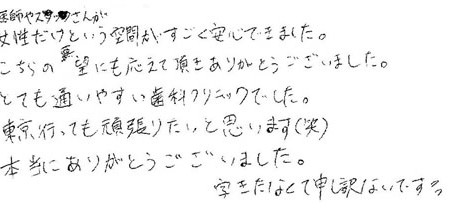 医師やスタッフさんが
女性だけという空間がすごく安心できました。
こちらの要望にも応えて頂きありがとうございました。
とても通いやすい歯科クリニックでした。
東京行っても頑張りたいと思います(笑)
本当にありがとうございました。
字きたなくて申し訳ないです